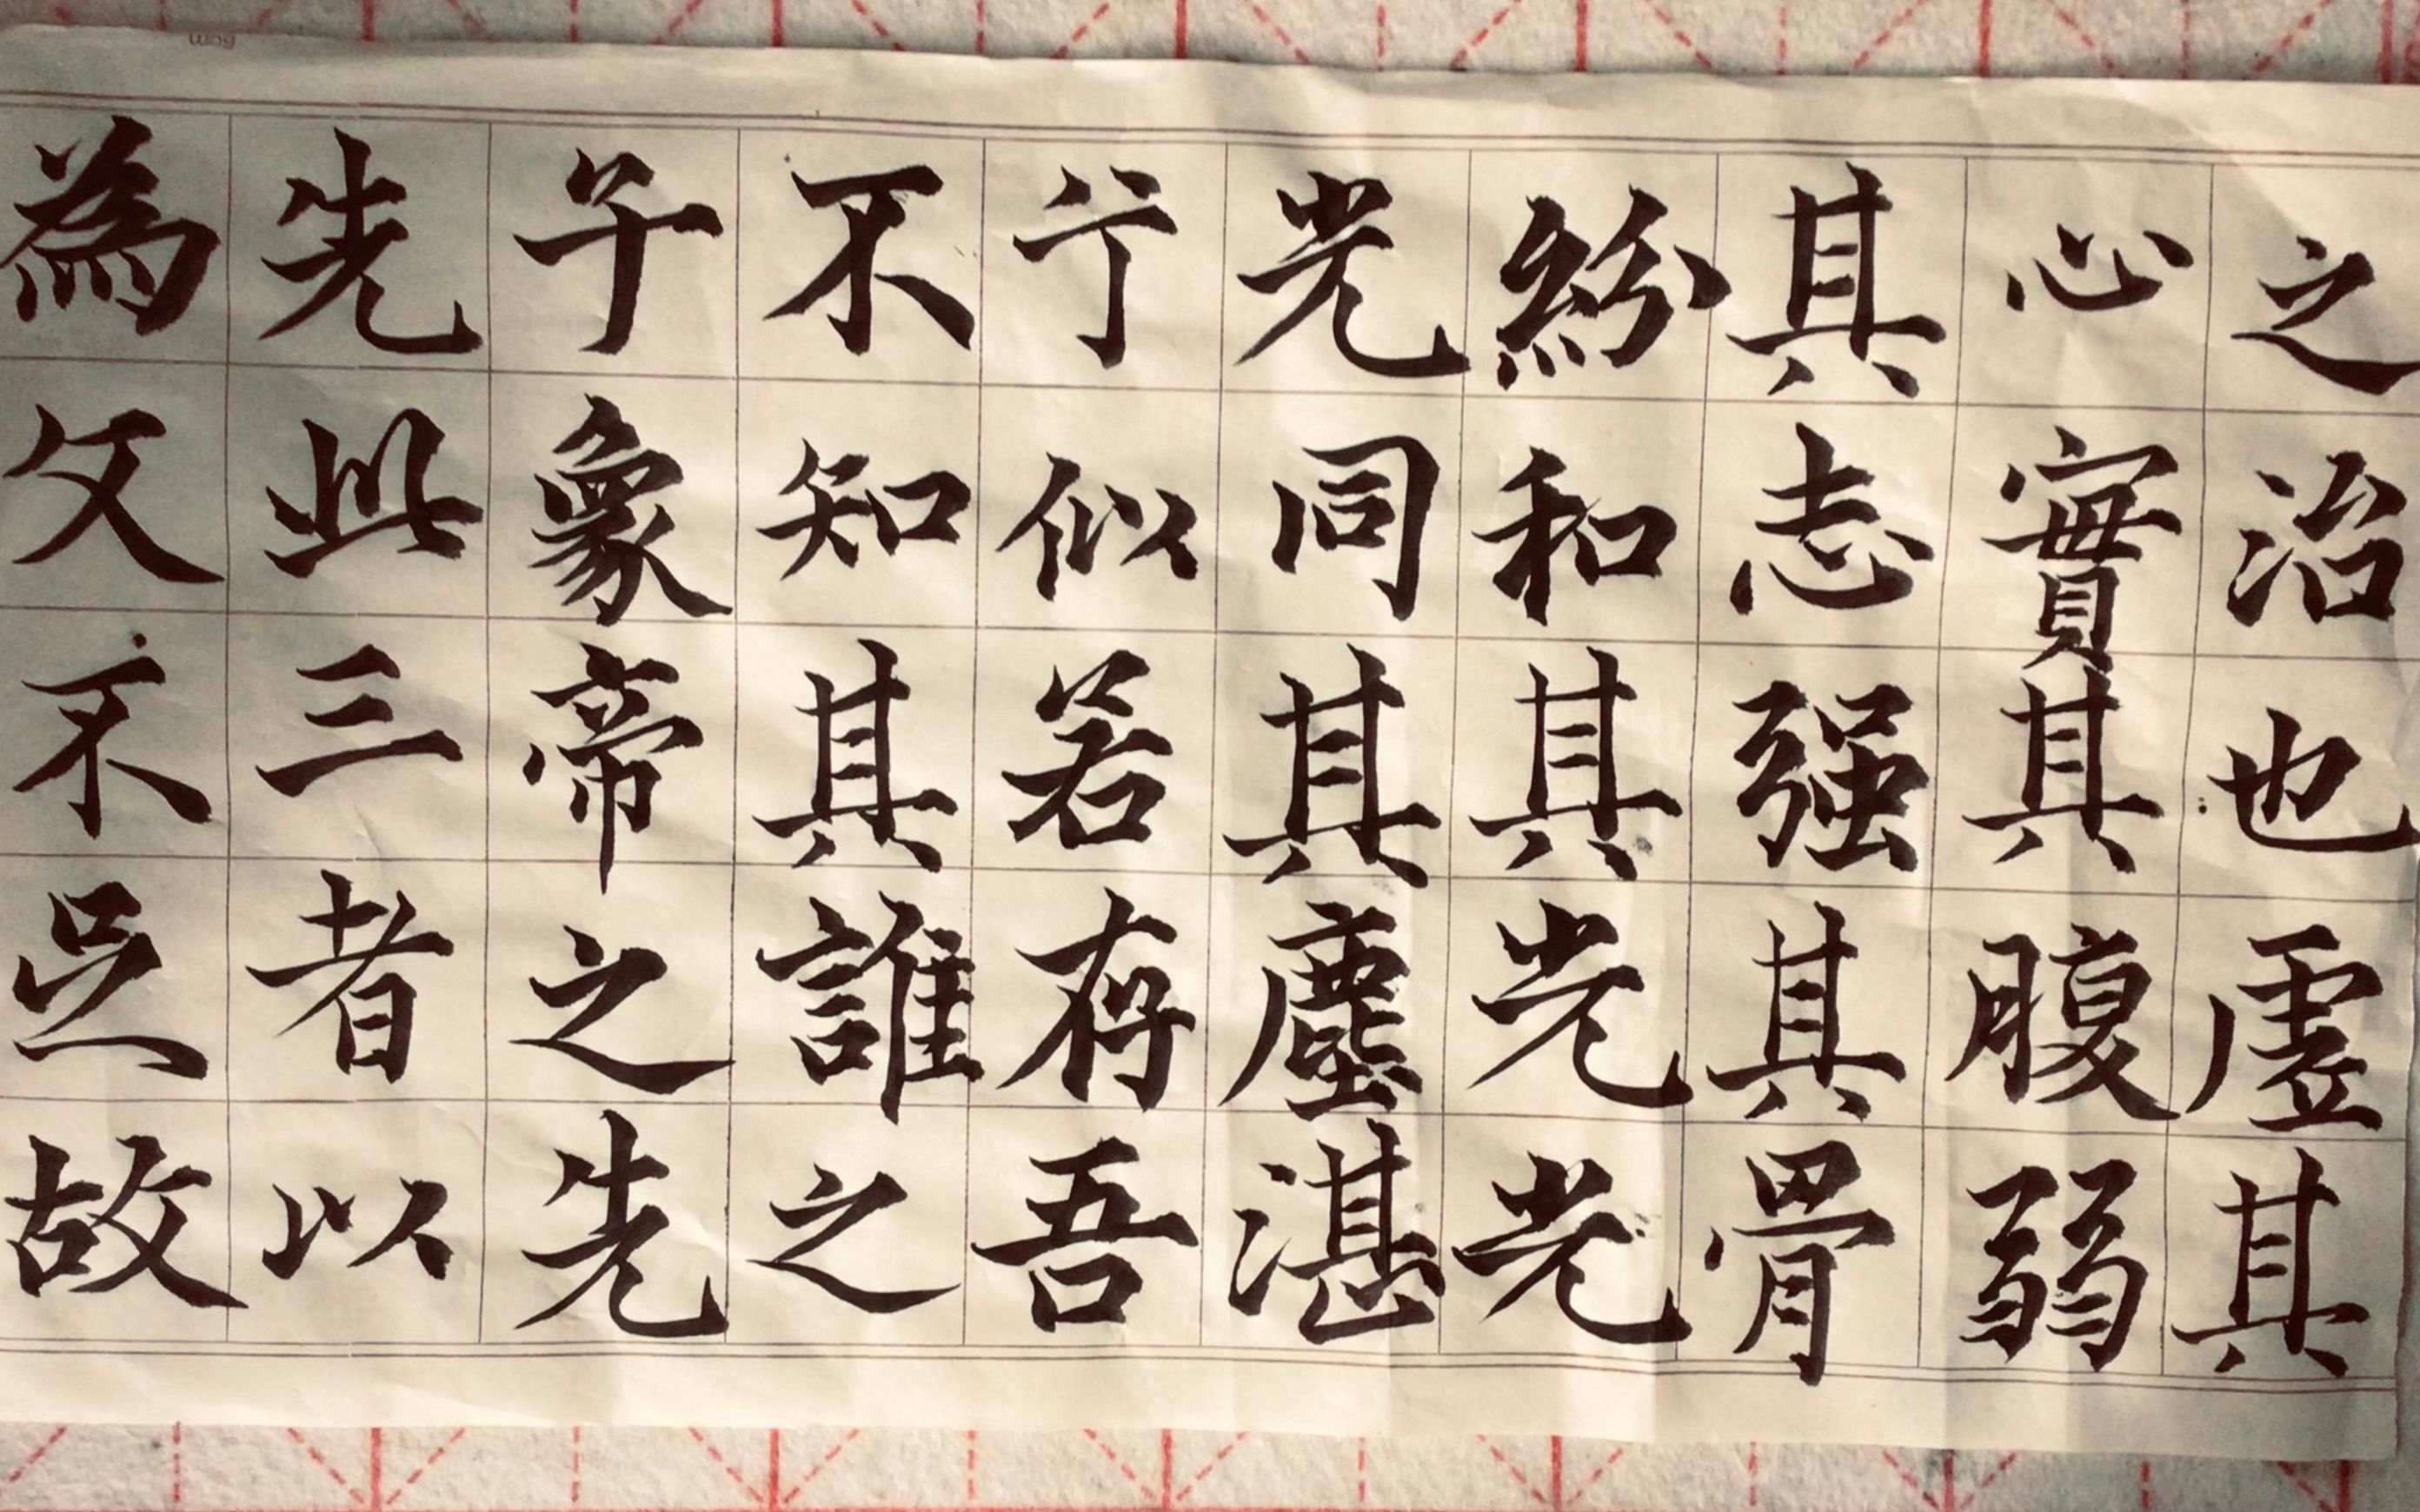 之治也虛其
心實其腹弱
其志强其骨
紛和其光光
光同其塵湛
兮似若存吾
不知其誰之
子象帝之先
先此三者以
為文不足故